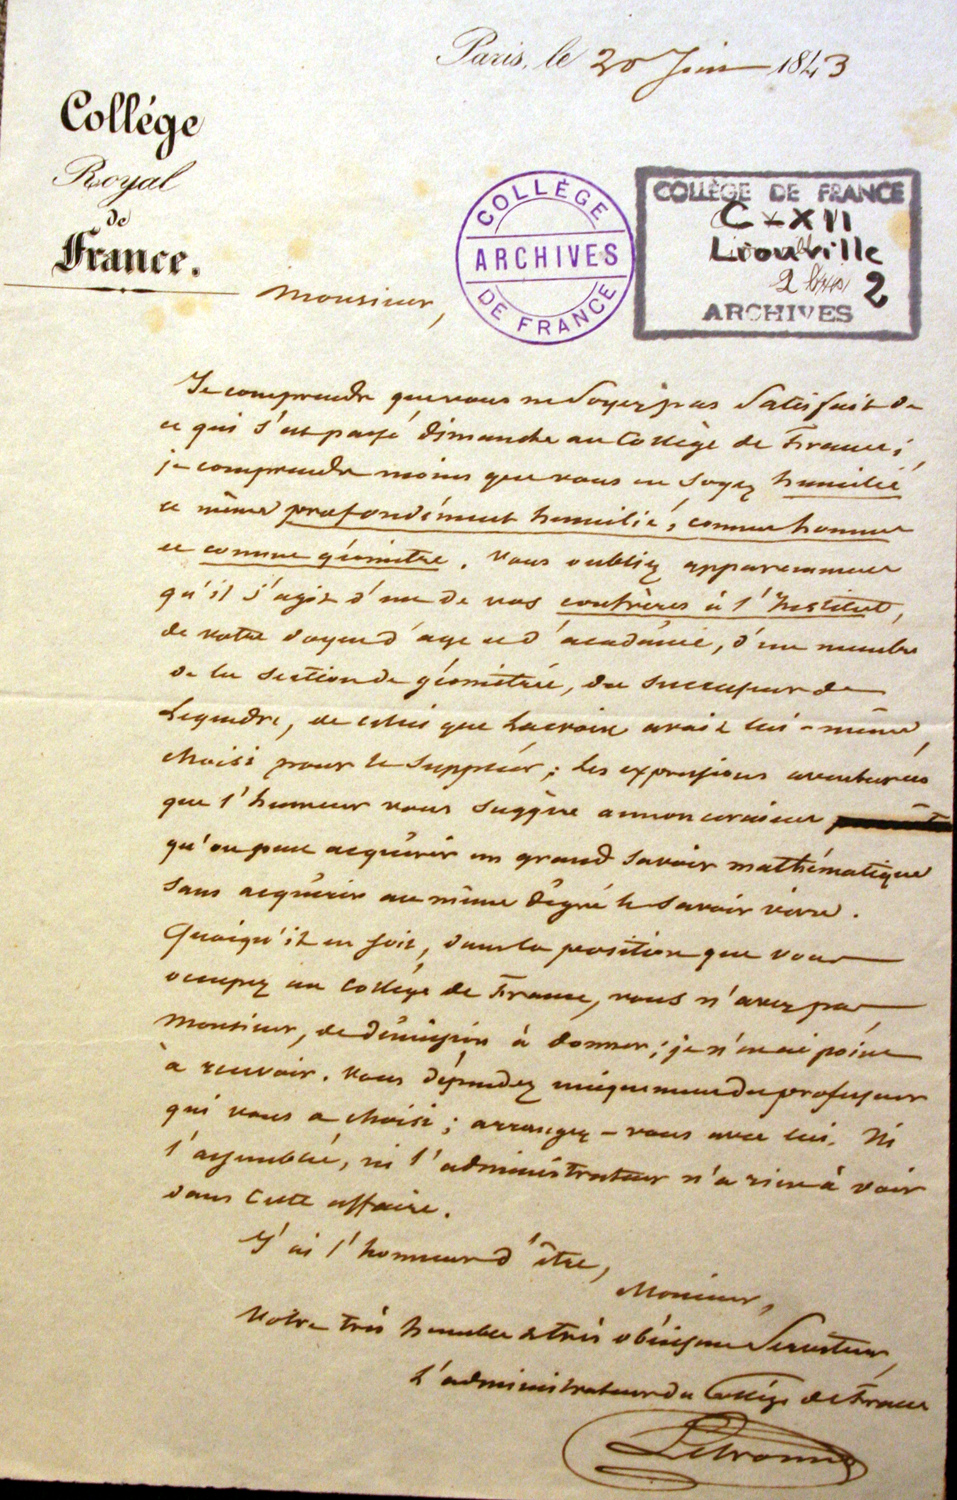 Paris, le 20 Juin 1843
Collége
Royal
de
France.
COLLÈGE
ARCHIVES
DE FRANCE
COLLÈGE DE FRANCE
C-XII
Liouville
2
ARCHIVES
Monsieur,
Je comprends que vous ne soyez pas satisfait de
ce qui s'est passé dimanche au Collège de France;
je comprends moins que vous en soyez humilié
et même profondément humilié, comme homme
et comme géomètre. Vous oubliez apparemment
qu'il s'agit d'un de vos confrères à l'Institut,
de votre doyen d'age et d'académie, d'un membre
de la section de géométrie, du successeur de
Legendre, de celui que Lacroix avait lui-même
choisi pour le suppléer; les expressions aventurées
que l'humeur vous suggère annonceraient
qu'on peut acquérir un grand savoir mathématique
sans acquérir au même dégré le savoir vivre.
Quoiqu'il en soit, dans la position que vous
occupez au Collège de France, vous n'avez pas
Monsieur, de démission à donner; je n'en ai point
à recevoir. Vous dépendez uniquement du professeur
qui vous a choisi; arrangez-vous avec lui. Ni
l'assemblée, ni l'administrateur n'a rien à voir
dans cette affaire.
J'ai l'honneur d'être,
Monsieur,
Votre très humble et très obéissant Serviteur,
L'administrateur du Collège de France
Letronne